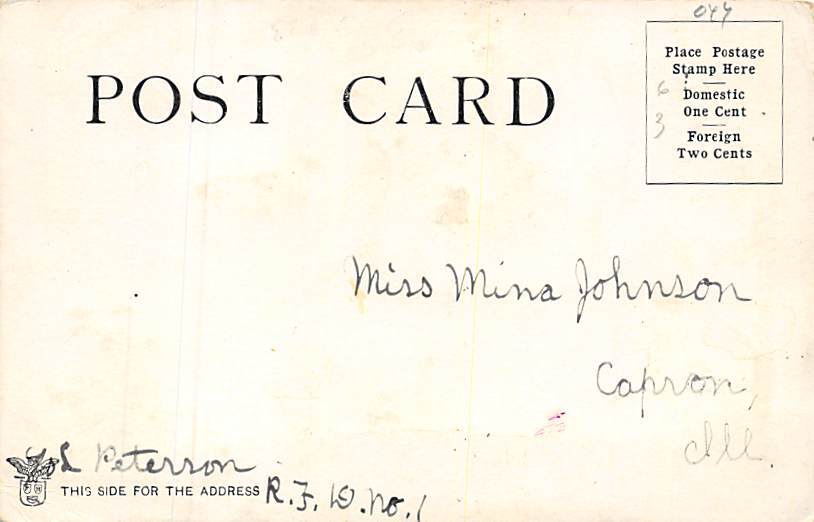 044
POST CARD
Place Postage
Stamp Here
Domestic
One Cent
Foreign
Two Cents
6
3
Miss Mina Johnson
Capron,
Ill.
Peterson
THIS SIDE FOR THE ADDRESS
R. F. D. No. 1